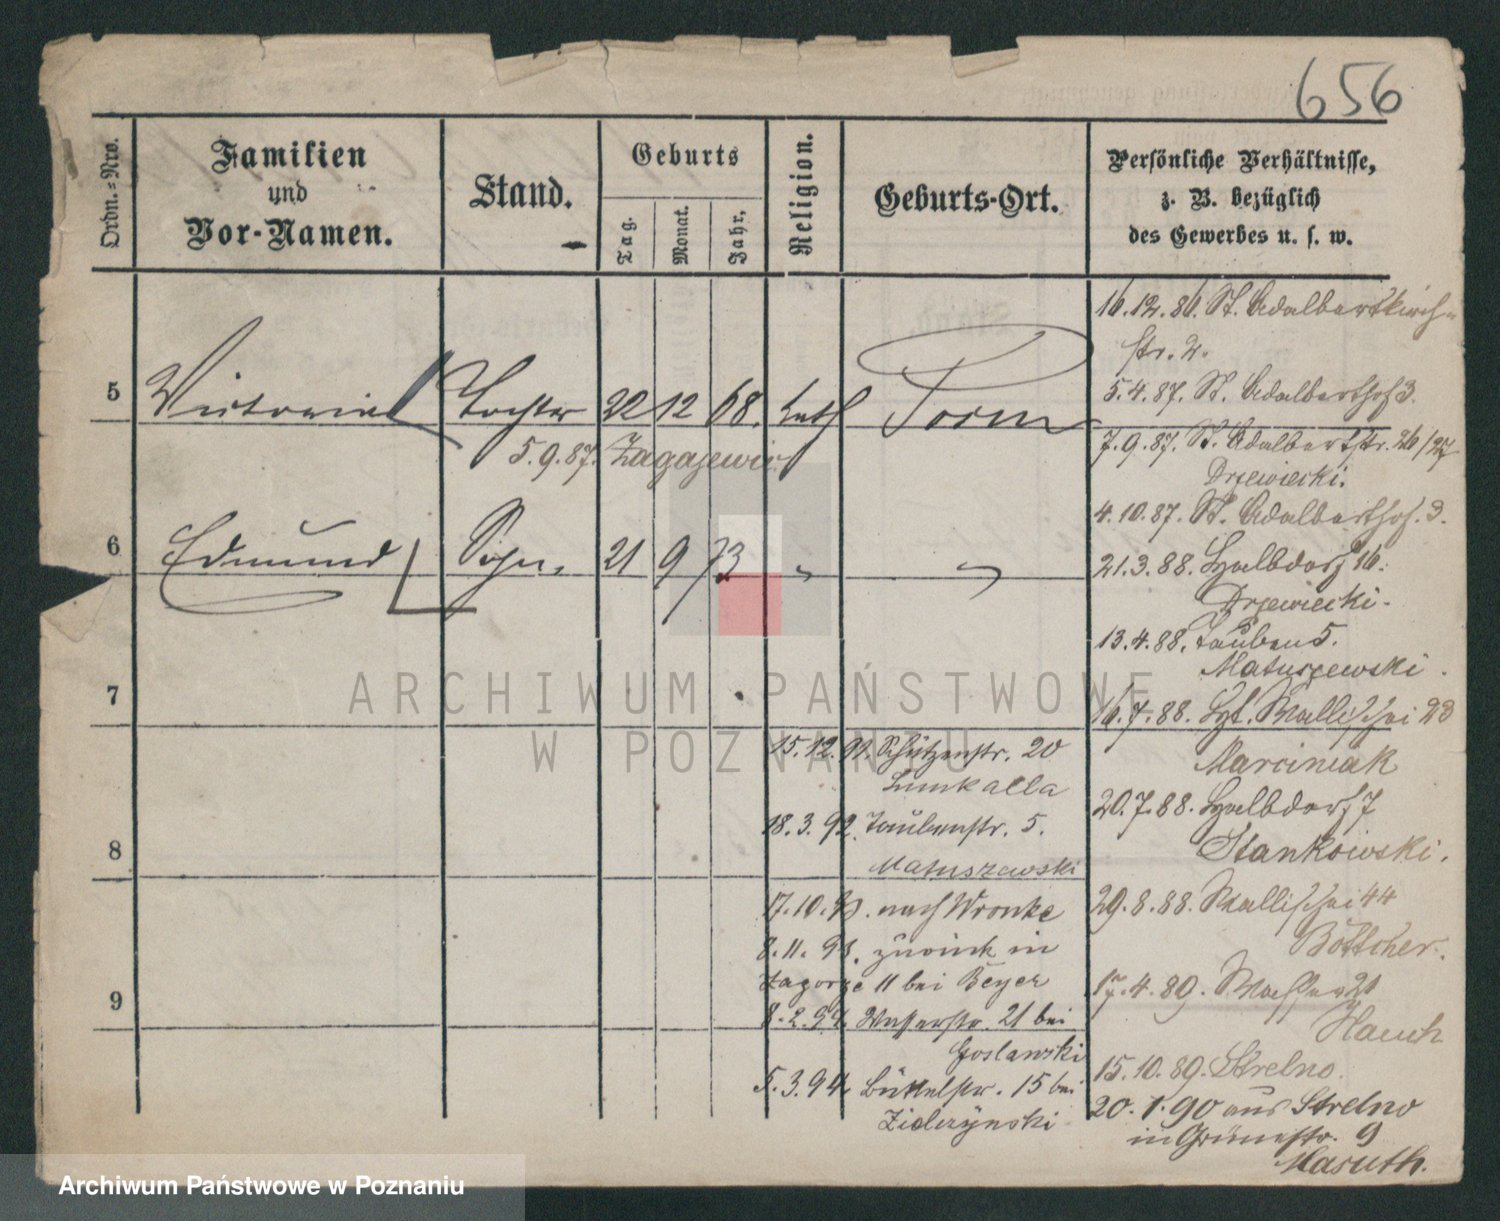 656
Ordn.=Nro.
Familien
und
Vor-Namen.
Stand.
Geburts
Tag.
Monat.
Jahr,
Religion.
Geburts-Ort.
Persönliche Verhältnisse,
z. B. bezüglich
des Gewerbes u. s. w.
5 Victoria Tochter 22 12 68. kath Posen
5.9.87. Zagajewic
6 Edmund Sohn, 21 9 73 " "
7
8
9
15.12.91. Schützenstr. 20
18.3.92. Taubenstr. 5.
Matuszewski
17.10.93. nach Wronke
8.11.93. zurück in
Zagorze 11 bei Beyer
8.2.94. Wasserstr. 21 bei
Goslawski
5.3.94. Büttelstr. 15 bei
16.12.86. St. Adalbertkirch-
str. 2.
5.4.87. St. Adalberthof 3.
7.9.87. St. Adalbertstr. 26/27
Drzewiecki.
4.10.87. St. Adalberthof. 3.
21.3.88. Halbdorf 16.
Drzewiecki.
13.4.88. Tauben 5.
Matuszewski.
16.7.88. Wallischei 23
Marciniak
20.7.88. Halbdorf 7
Stankowski.
29.8.88. Wallischei 44
Böttcher.
17.4.89. Wasser 21
Hauch
15.10.89. Strelno.
20.1.90 aus Strelno
in Grünestr. 9
Masuth.
ARCHIWUM PAŃSTWOWE
W POZNANIU
Archiwum Państwowe w Poznaniu